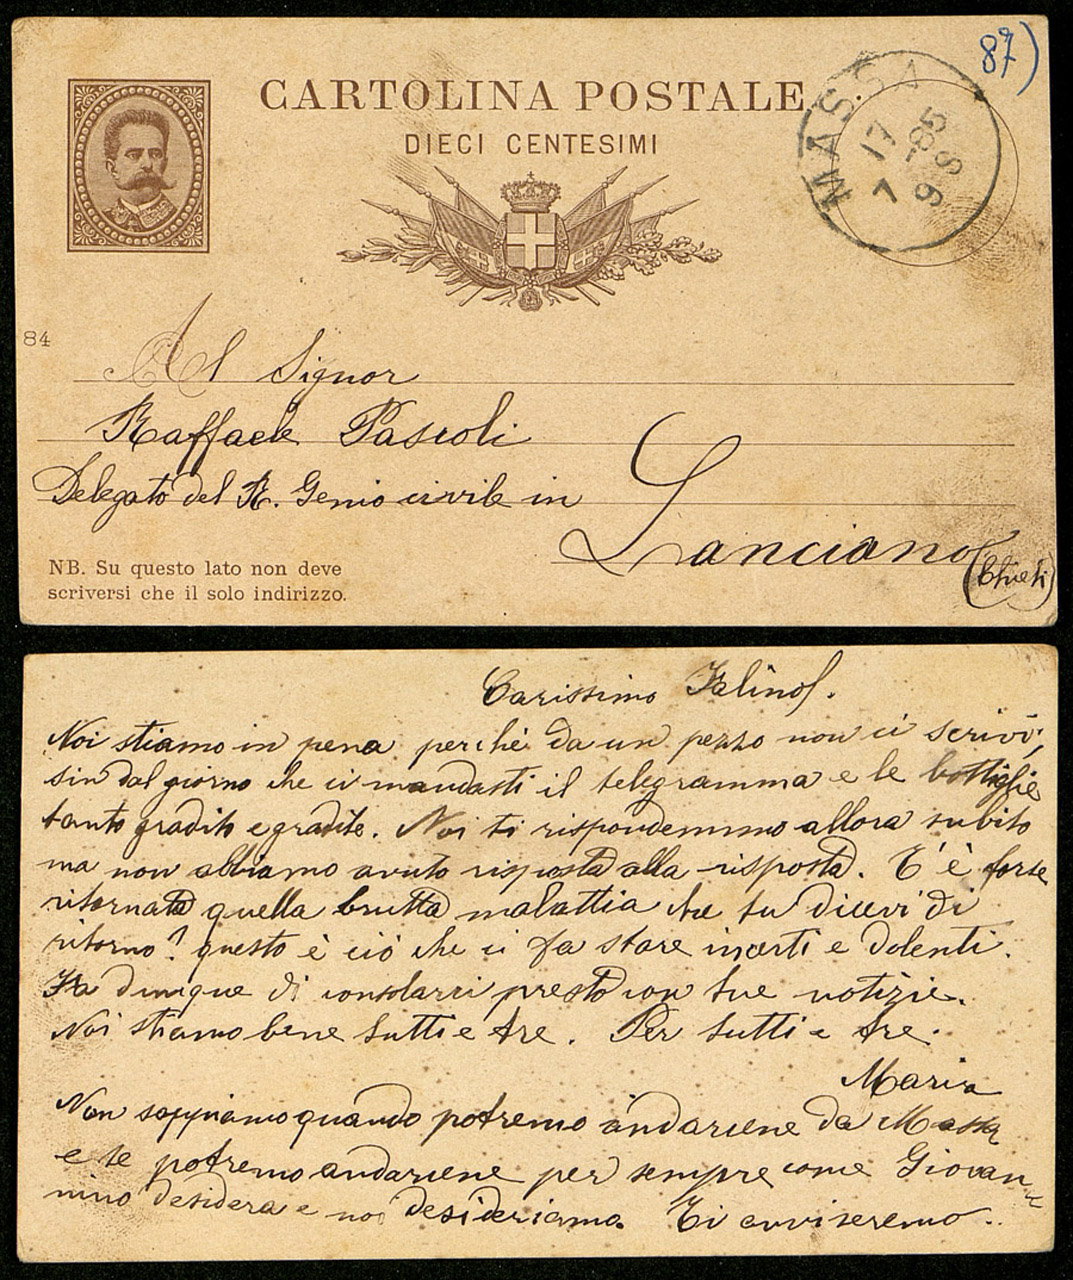 87)
CARTOLINA POSTALE
DIECI CENTESIMI
MASSA
17
7 - 85
9 S
84
Al Signor
Raffaele Pascoli
Delegato del R. Genio civile in
Lanciano
(Chieti)
NB. Su questo lato non deve
scriversi che il solo indirizzo.
Carissimo Falino.
Noi stiamo in pena perchè da un pezzo non ci scrivi,
sin dal giorno che ci mandasti il telegramma e le bottiglie
tanto gradito e gradite. Noi ti rispondemmo allora subito
ma non abbiamo avuto risposta alla risposta. T'è forse
ritornata quella brutta malattia che tu dicevi di
ritorno? questo è ciò che ci fa stare incerti e dolenti.
Fa dunque di consolarci presto con tue notizie.
Noi stiamo bene tutti e tre. Per tutti e tre.
Maria
Non sappiamo quando potremo andarcene da Massa
e se potremo andarcene per sempre come Giovan-
nino desidera e noi desideriamo. Ti avviseremo.